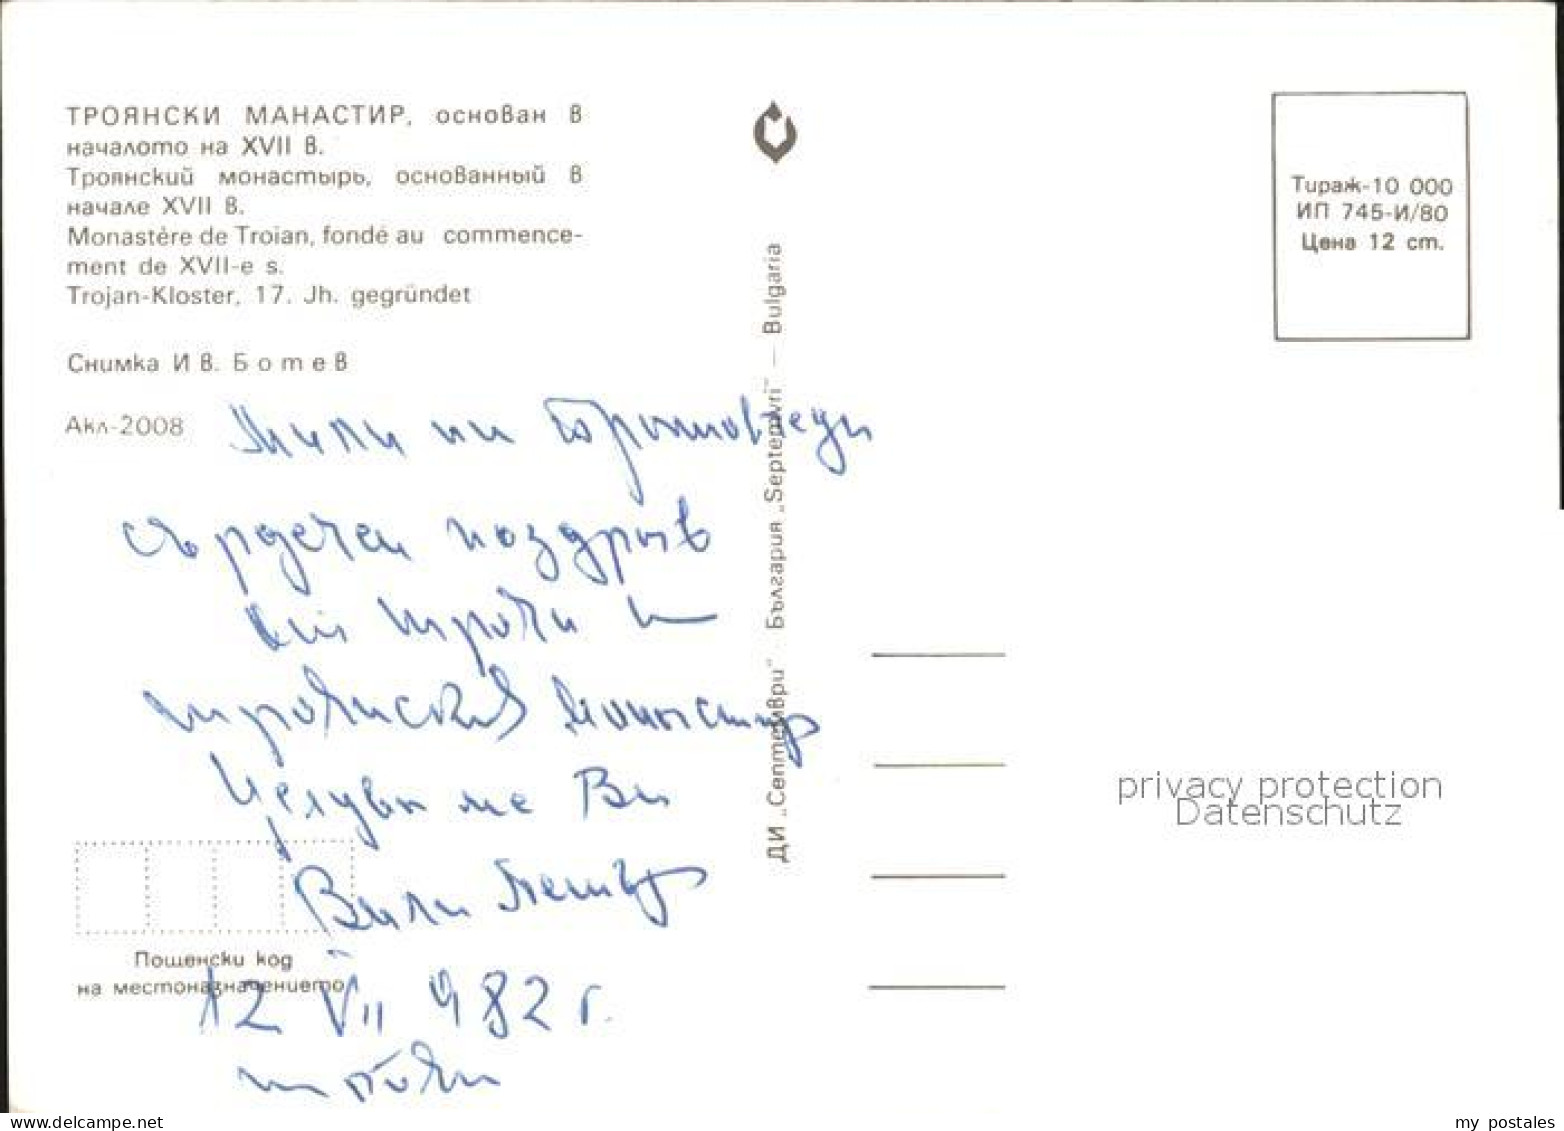 ТРОЯНСКИ МАНАСТИР, основан в
началото на XVII в.
Троянский монастырь, основанный в
начале XVII в.
Monastère de Troian, fondé au commence-
ment de XVII-e s.
Trojan-Kloster, 17. Jh. gegründet
Снимка Ив. Ботев
Акл-2008
Мили ни
сърдечен поздрав
от Троян и
троянския манастир
Целувам ме Ви
Вили Петър
12 VII 982 г.
Троян
Пощенски код
на местоназначението
ДИ „Септември" България „Septemvri" — Bulgaria
Тираж-10 000
ИП 745-И/80
Цена 12 ст.
privacy protection
Datenschutz
www.delcampe.net
my_postales